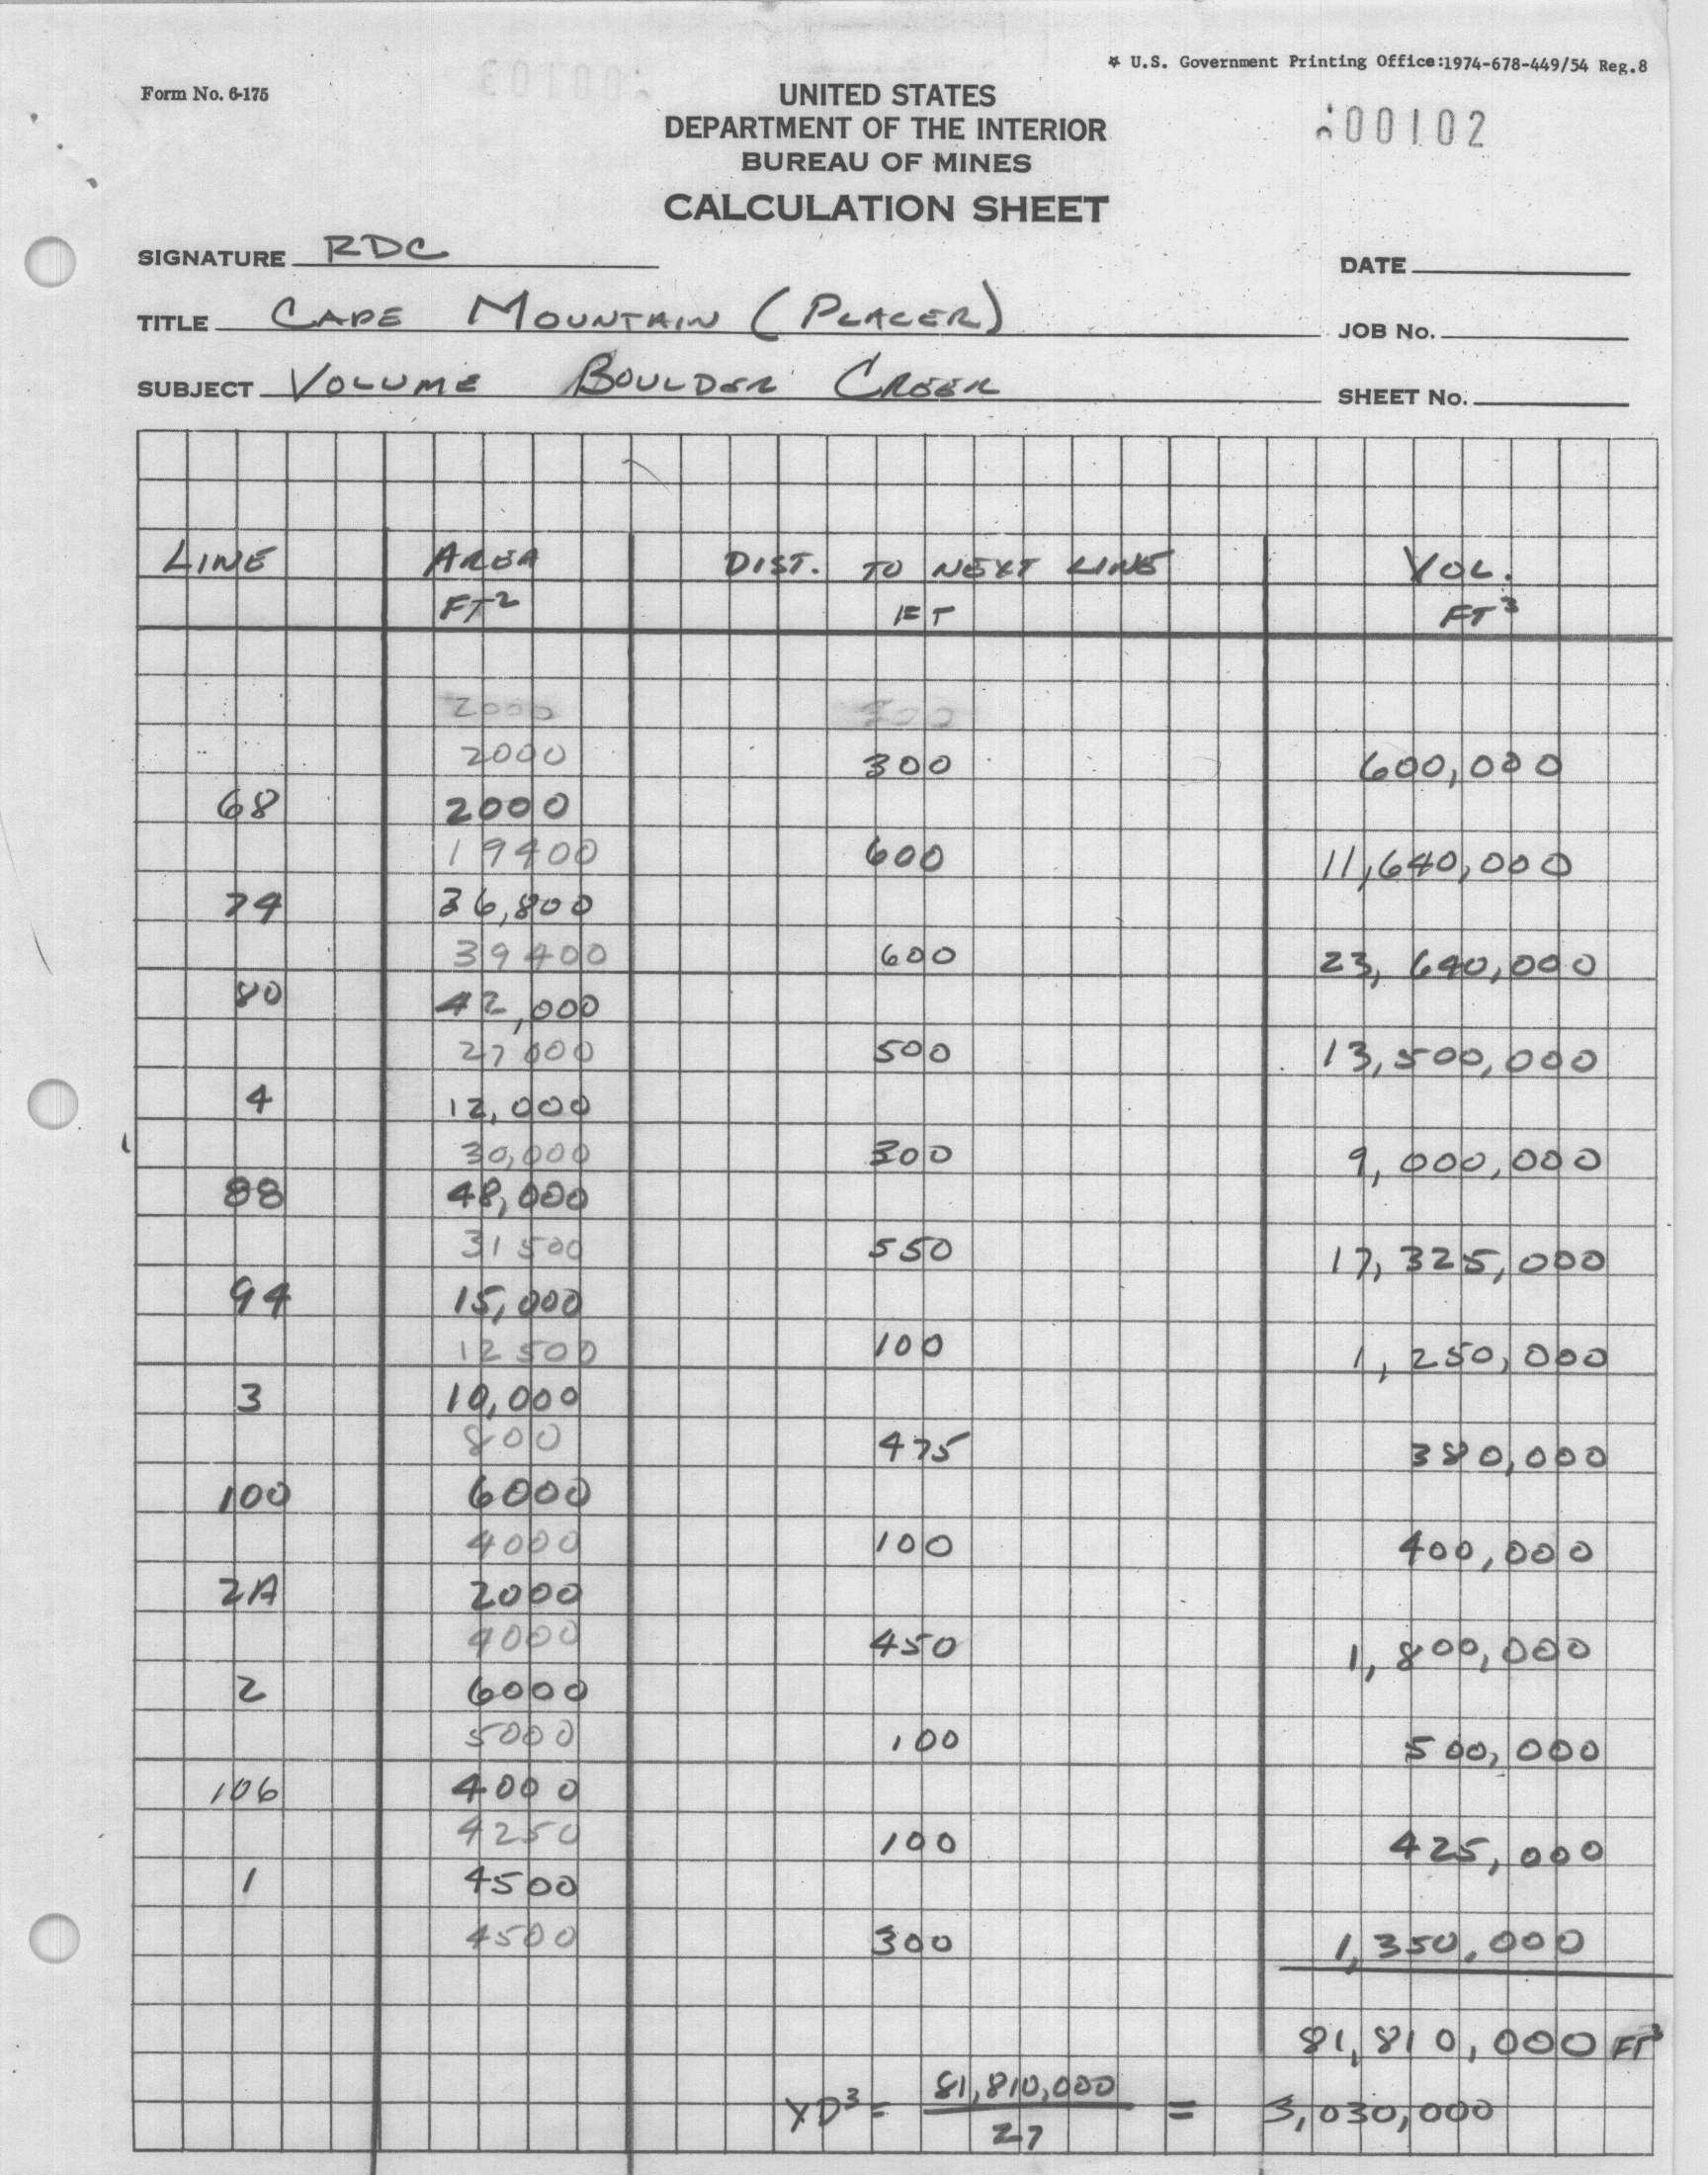 * U.S. Government Printing Office:1974-678-449/54 Reg.8
Form No. 6-175
UNITED STATES
DEPARTMENT OF THE INTERIOR
BUREAU OF MINES
CALCULATION SHEET
00102
SIGNATURE RDC
DATE
TITLE CAPE MOUNTAIN (PLACER)
JOB No.
SUBJECT VOLUME BOULDER CREEK
SHEET No.
LINE AREA DIST. TO NEXT LINE VOL.
FT² FT FT³
2000
2000 300 600,000
68 2000
19400 600 11,640,000
74 36,800
39400 600 23,640,000
80 42,000
27000 500 13,500,000
4 12,000
30,000 300 9,000,000
88 48,000
31500 550 17,325,000
94 15,000
12500 100 1,250,000
3 10,000
800 475 380,000
100 6000
4000 100 400,000
2A 2000
4000 450 1,800,000
2 6000
5000 100 500,000
106 4000
4250 100 425,000
1 4500
4500 300 1,350,000
81,810,000 FT³
YD³ = 81,810,000 / 27 = 3,030,000